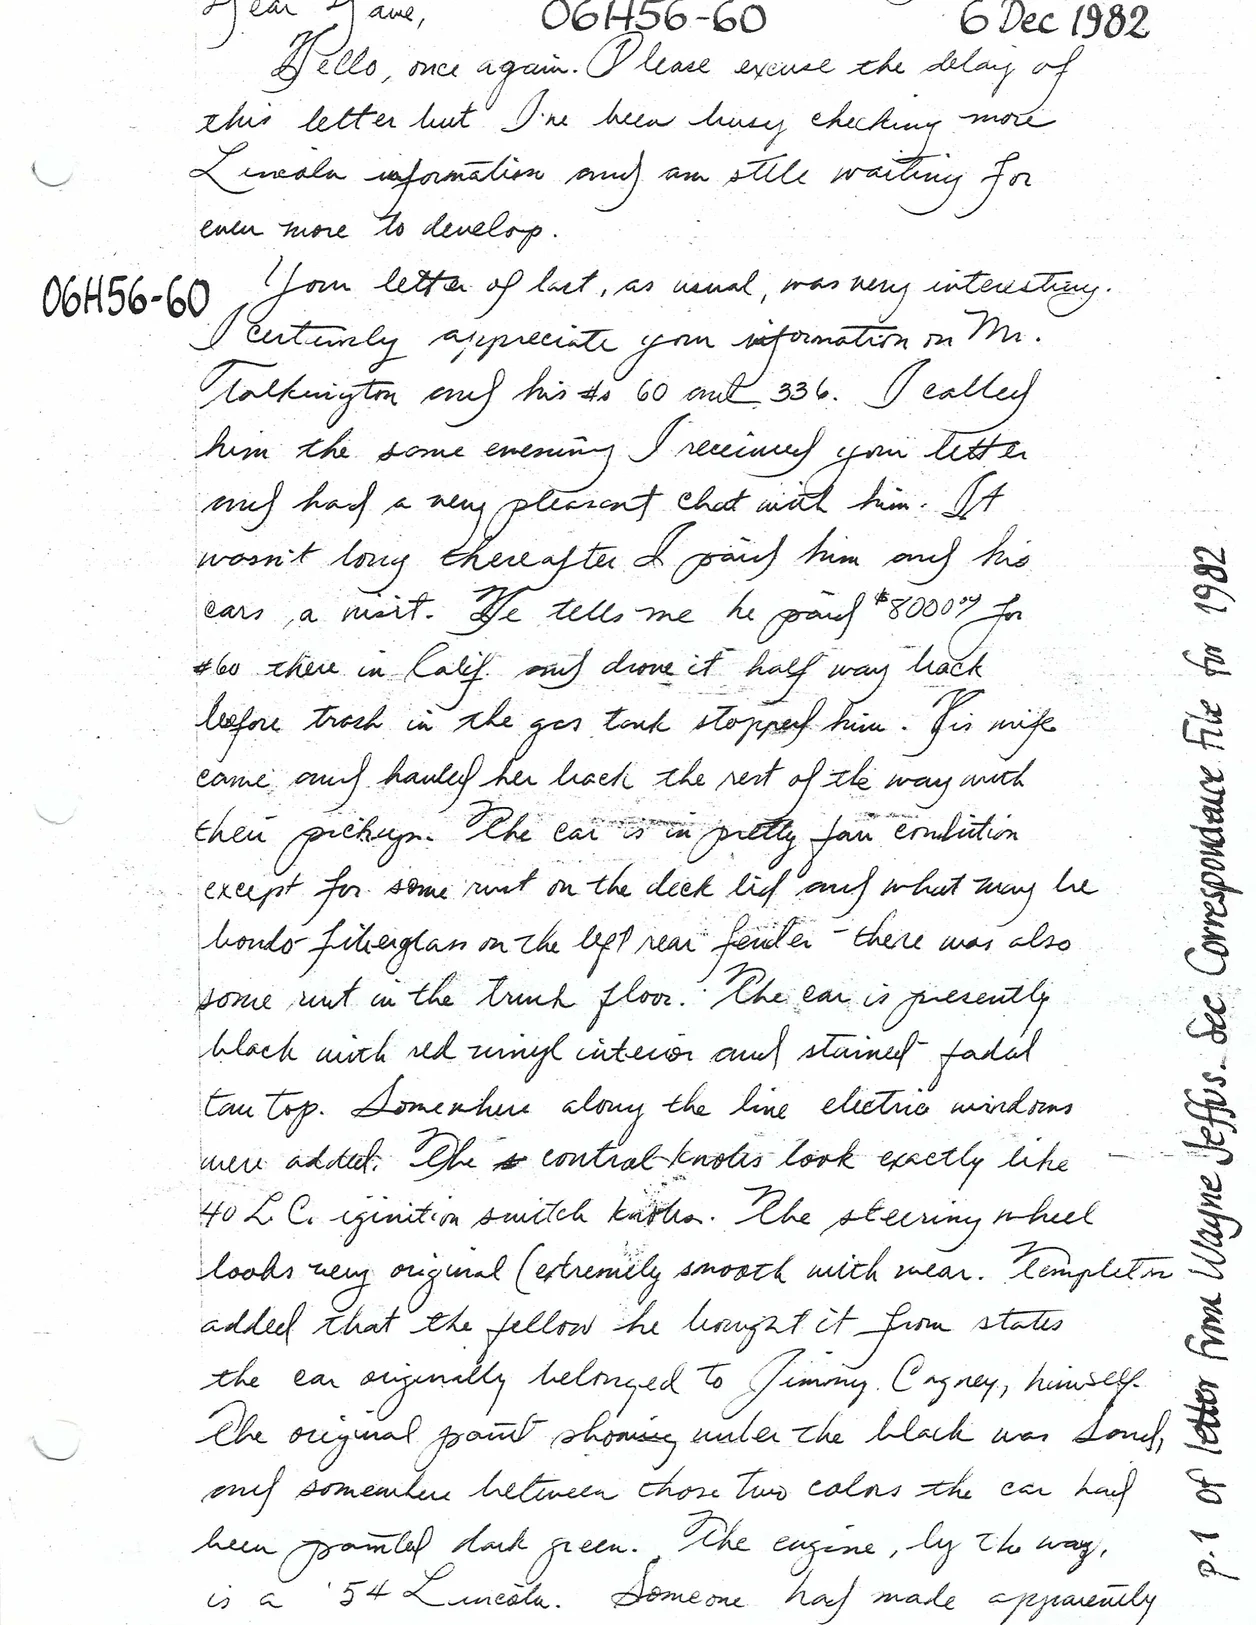 Dear Dave, 06H56-60 6 Dec 1982
Hello, once again. Please excuse the delay of
this letter but I've been busy checking more
Lincoln information and am still waiting for
even more to develop.
06H56-60
Your letter of last, as usual, was very interesting.
I certainly appreciate your information on Mr.
Talkington and his #s 60 and 336. I called
him the same evening I received your letter
and had a very pleasant chat with him. It
wasn't long thereafter I paid him and his
cars, a visit. He tells me he paid $8000.00 for
#60 there in Calif. and drove it half way back
before trash in the gas tank stopped him. His wife
came and hauled her back the rest of the way with
their pickup. The car is in pretty fair condition
except for some rust on the deck lid and what may be
bondo-fiberglass on the left rear fender - there was also
some rust in the trunk floor. The car is presently
black with red vinyl interior and stained-faded
tan top. Somewhere along the line electric windows
were added. The control knobs look exactly like
40 L.C. iginition switch knobs. The steering wheel
looks very original (extremely smooth with wear. Templeton
added that the fellow he bought it from states
the car originally belonged to Jimmy Cagney, himself.
The original paint showing under the black was Sand,
and somewhere between those two colors the car had
been painted dark green. The engine, by the way,
is a '54 Lincoln. Someone had made apparently
p. 1 of letter from Wayne Jeffus. See Correspondence File for 1982